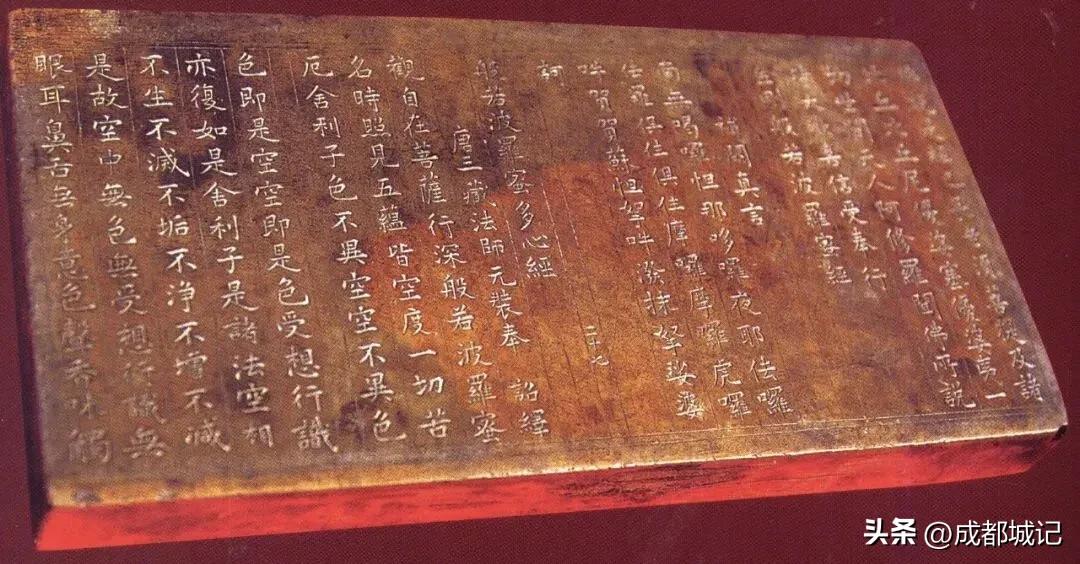 菩提及諸
比丘比丘尼優婆塞優婆夷一
切世間天人阿修羅聞佛所説
皆大歡喜信受奉行
金剛般若波羅蜜經
補闕真言
南無喝囉怛那哆囉夜耶佉囉
佉羅俱住俱住摩囉摩囉虎囉
吽賀賀蘇怛拏吽潑抹拏娑婆
訶
二十七
般若波羅蜜多心經
唐三藏法師元奘奉 詔繹
觀自在菩薩行深般若波羅蜜
多時照見五蘊皆空度一切苦
厄舍利子色不異空空不異色
色即是空空即是色受想行識
亦復如是舍利子是諸法空相
不生不滅不垢不淨不增不減
是故空中無色無受想行識無
眼耳鼻舌無身意色聲香味觸
头条 @成都城记